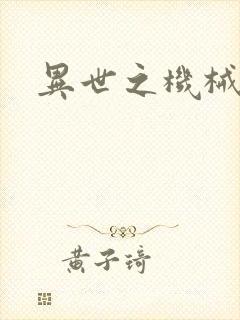 異世之機械
黃子琦